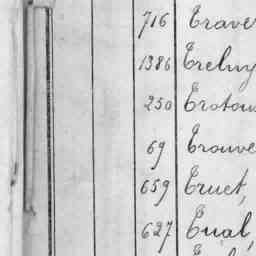 716 Trave
1386 Treluy
250 Trotou
69 Trouve
659 Truet,
627 Tual,